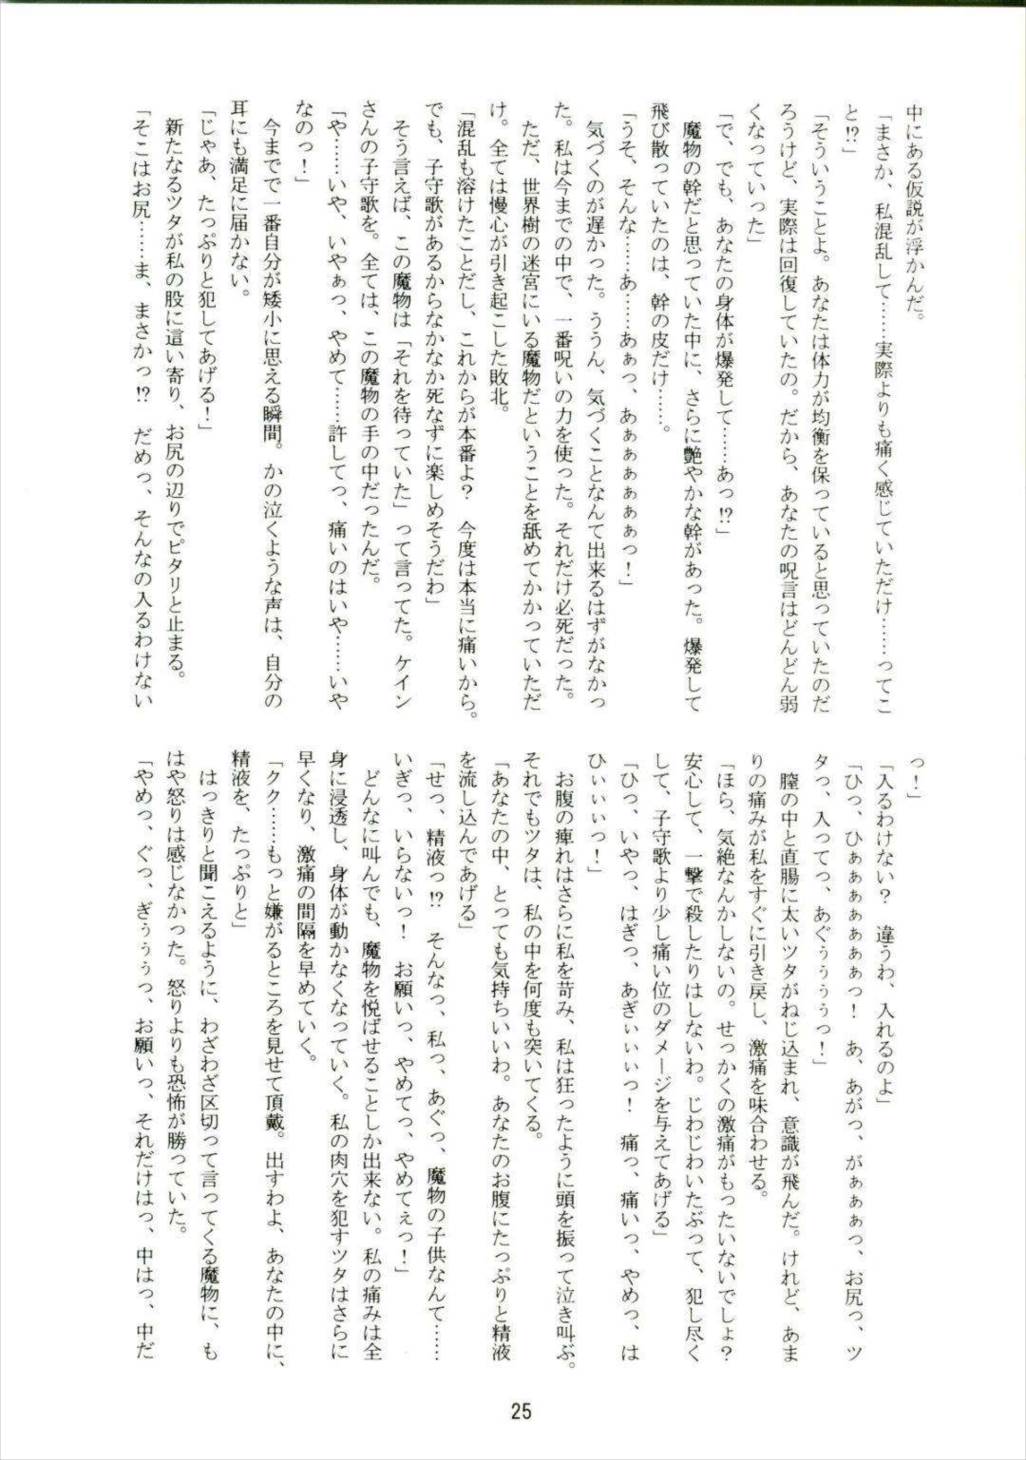 中にある仮説が浮かんだ。
「まさか、私混乱して……実際よりも痛く感じていただけ……ってこ
と!?」
「そういうことよ。あなたは体力が均衡を保っていると思っていたのだ
ろうけど、実際は回復していたの。だから、あなたの呪言はどんどん弱
くなっていった」
「で、でも、あなたの身体が爆発して……あっ!?」
　魔物の幹だと思っていた中に、さらに艶やかな幹があった。爆発して
飛び散っていたのは、幹の皮だけ……。
「うそ、そんな……あ……あぁっ、あぁぁぁぁぁぁっ！」
　気づくのが遅かった。ううん、気づくことなんて出来るはずがなかっ
た。私は今までの中で、一番呪いの力を使った。それだけ必死だった。
　ただ、世界樹の迷宮にいる魔物だということを舐めてかかっていただ
け。全ては慢心が引き起こした敗北。
「混乱も溶けたことだし、これからが本番よ？　今度は本当に痛いから。
でも、子守歌があるからなかなか死なずに楽しめそうだわ」
　そう言えば、この魔物は「それを待っていた」って言ってた。ケイン
さんの子守歌を。全ては、この魔物の手の中だったんだ。
「や……いや、いやぁっ、やめて……許してっ、痛いのはいや……いや
なのっ！」
　今までで一番自分が矮小に思える瞬間。かの泣くような声は、自分の
耳にも満足に届かない。
「じゃあ、たっぷりと犯してあげる！」
　新たなるツタが私の股に這い寄り、お尻の辺りでピタリと止まる。
「そこはお尻……ま、まさかっ!?　だめっ、そんなの入るわけない
っ！」
「入るわけない？　違うわ、入れるのよ」
「ひっ、ひぁぁぁぁぁぁっ！　あ、あがっ、がぁぁぁっ、お尻っ、ツ
タっ、入ってっ、あぐぅぅぅぅっ！」
　膣の中と直腸に太いツタがねじ込まれ、意識が飛んだ。けれど、あま
りの痛みが私をすぐに引き戻し、激痛を味合わせる。
「ほら、気絶なんかしないの。せっかくの激痛がもったいないでしょ？
安心して、一撃で殺したりはしないわ。じわじわいたぶって、犯し尽く
して、子守歌より少し痛い位のダメージを与えてあげる」
「ひっ、いやっ、はぎっ、あぎぃぃぃっ！　痛っ、痛いっ、やめっ、は
ひぃぃぃっ！」
　お腹の痺れはさらに私を苛み、私は狂ったように頭を振って泣き叫ぶ。
それでもツタは、私の中を何度も突いてくる。
「あなたの中、とっても気持ちいいわ。あなたのお腹にたっぷりと精液
を流し込んであげる」
「せっ、精液っ!?　そんなっ、私っ、あぐっ、魔物の子供なんて……
いぎっ、いらないっ！　お願いっ、やめてっ、やめてぇっ！」
　どんなに叫んでも、魔物を悦ばせることしか出来ない。私の痛みは全
身に浸透し、身体が動かなくなっていく。私の肉穴を犯すツタはさらに
早くなり、激痛の間隔を早めていく。
「クク……もっと嫌がるところを見せて頂戴。出すわよ、あなたの中に、
精液を、たっぷりと」
　はっきりと聞こえるように、わざわざ区切って言ってくる魔物に、も
はや怒りは感じなかった。怒りよりも恐怖が勝っていた。
「やめっ、ぐっ、ぎぅぅぅっ、お願いっ、それだけはっ、中はっ、中だ
25